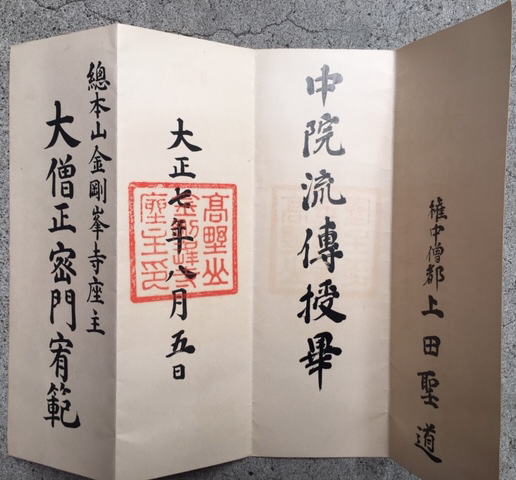 権中僧都 上田聖道
中院流傳授畢
大正七年八月五日
高野山
金剛峯寺
座主印
總本山金剛峯寺座主
大僧正密門宥範